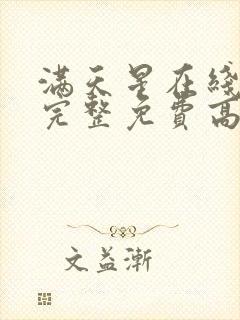 满天星在线
完整免費高
文益漸